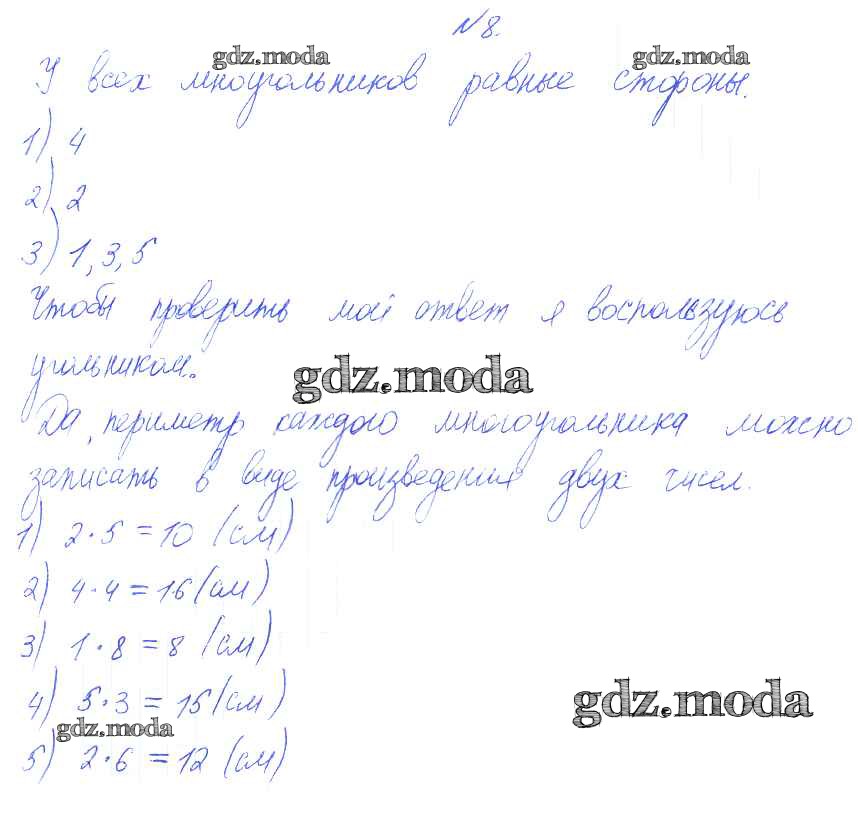 №8.
gdz.moda gdz.moda
У всех мноугольников равные стороны.
1) 4
2) 2
gdz.moda
3) 1, 3, 5
Чтобы проверить мой ответ я воспользуюсь
угольником.
gdz.moda
Да, периметр каждого многоугольника можно
записать в виде произведения двух чисел.
1) 2·5=10 (см)
2) 4·4=16 (см)
3) 1·8=8 (см)
4) 5·3=15 (см)
gdz.moda
gdz.moda
5) 2·6=12 (см)